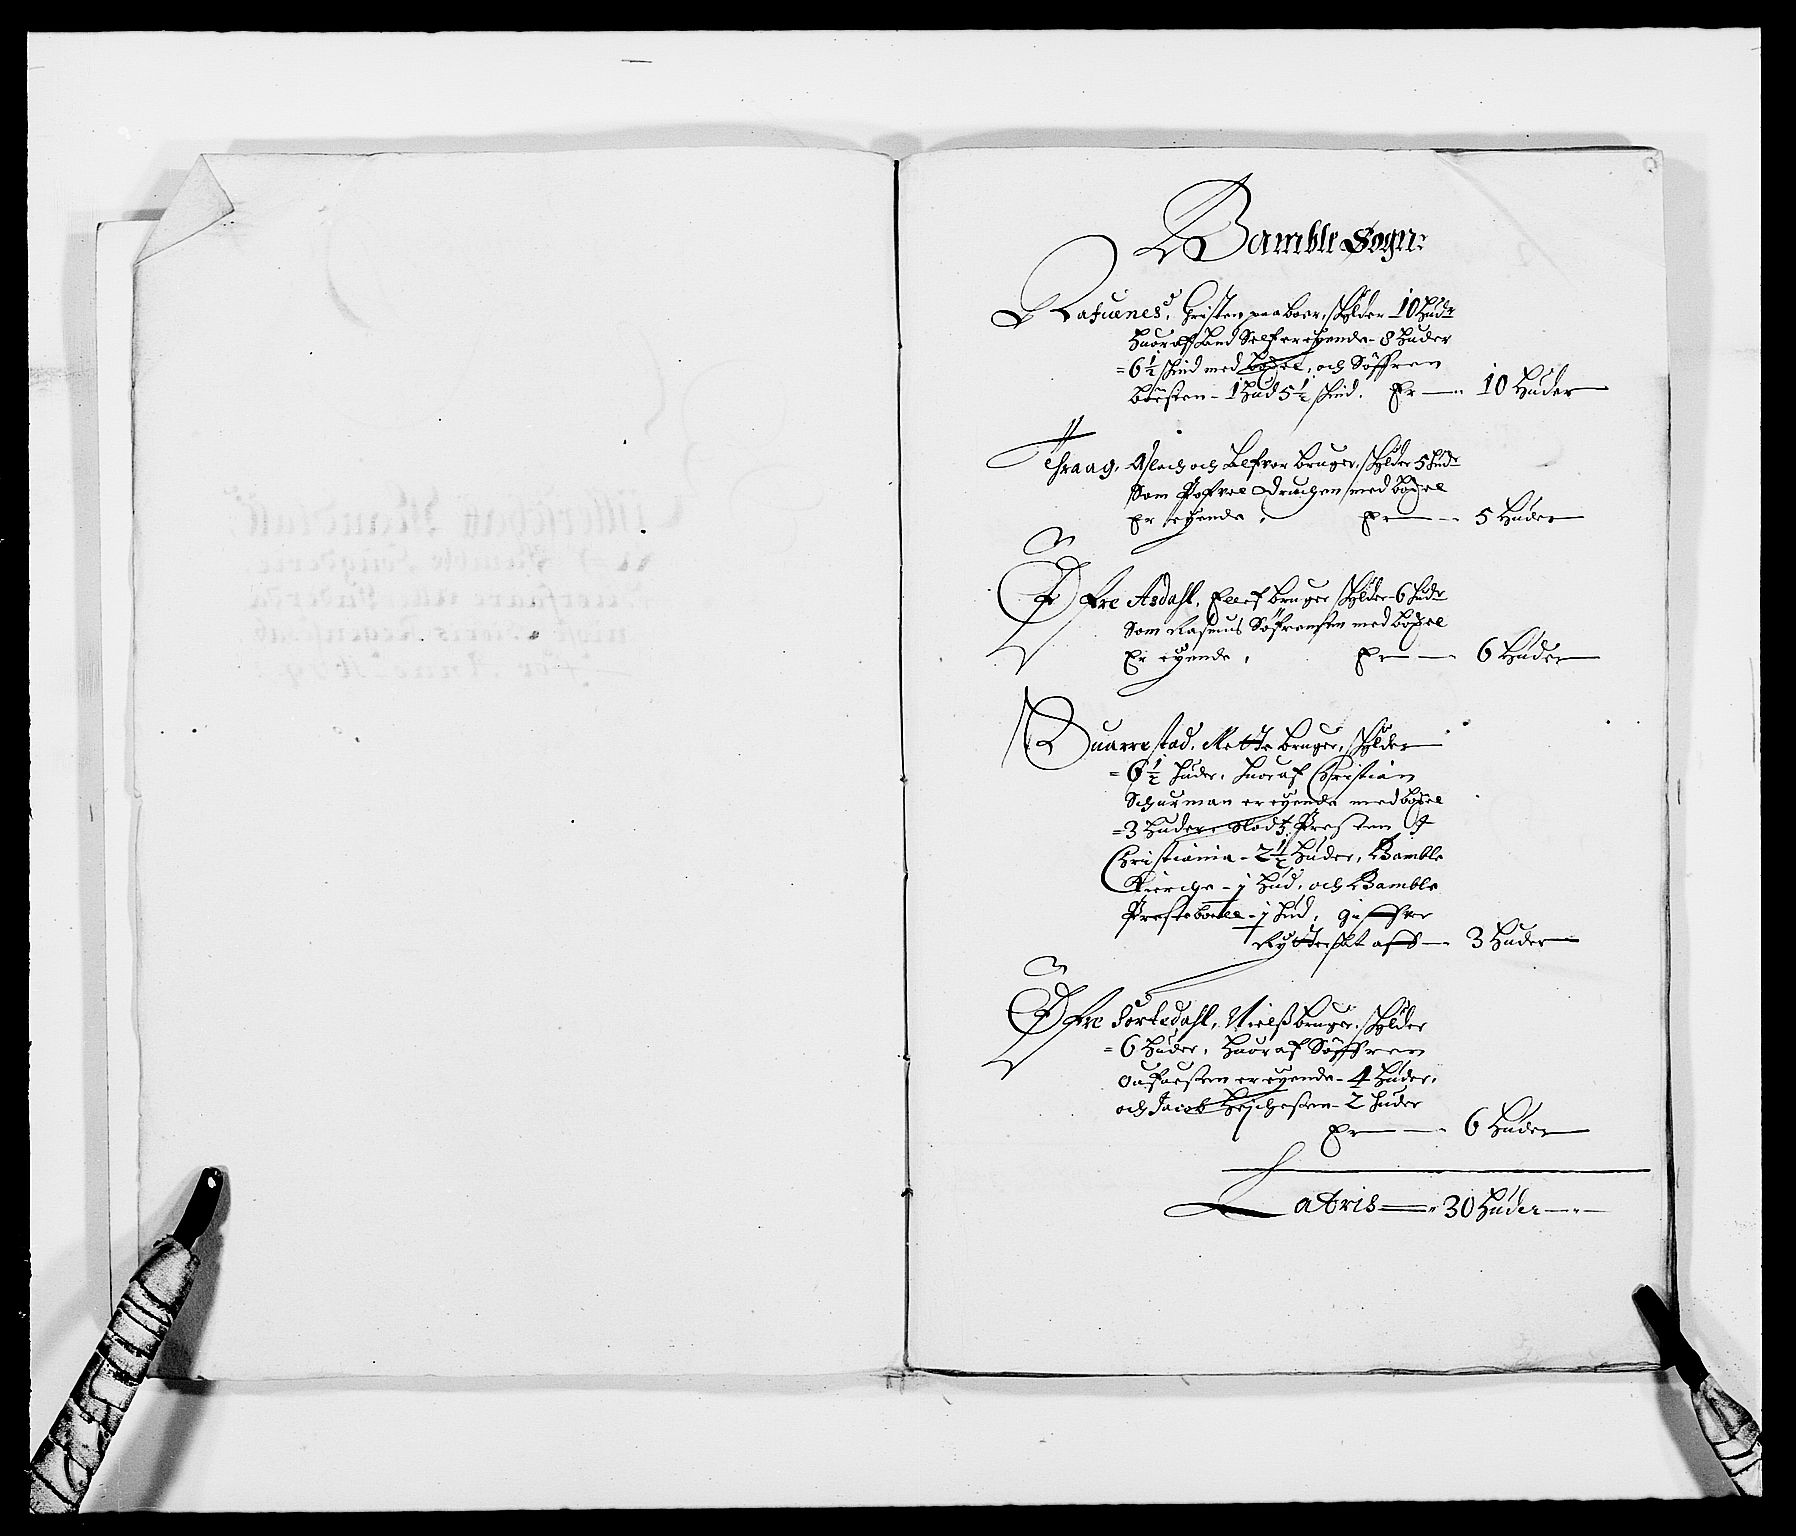 Bamble Sogn:
Rafuenes, Christen paaboer, schylder 10 hudr
huoraf hand Self er eyende - 8 huder
= 6½ skind med böxel, och Söffren
- 1 hud 5½ skind. Er — 10 huder
Thraag, Aslach och bruger, schylder 5 hudr
Som Drachen med böxel
Er eyende, Er — 5 huder
Öfre Asdahl, Ellef bruger schylder 6 hudr
Som Rasmus Söffrensen med böxel
Er eyende, Er — 6 huder
Quarrestad, Mette bruger, schylder
= 6½ huder, huoraf Christian
Schurman er eyende med böxel
= 3 huder, Slodtz Presten I
Christiania - 2½ huder, Bamble
Kierche - j hud, och Bamble
Prestebolle - j hud, giffver
Rytterskat aff — 3 huder
Öfre Sortedahl, Nielß bruger, schylder
= 6 huder, huoraf Söffren
er eyende - 4 huder,
och Jacob - 2 huder
Er — 6 huder
Latris — 30 huder —